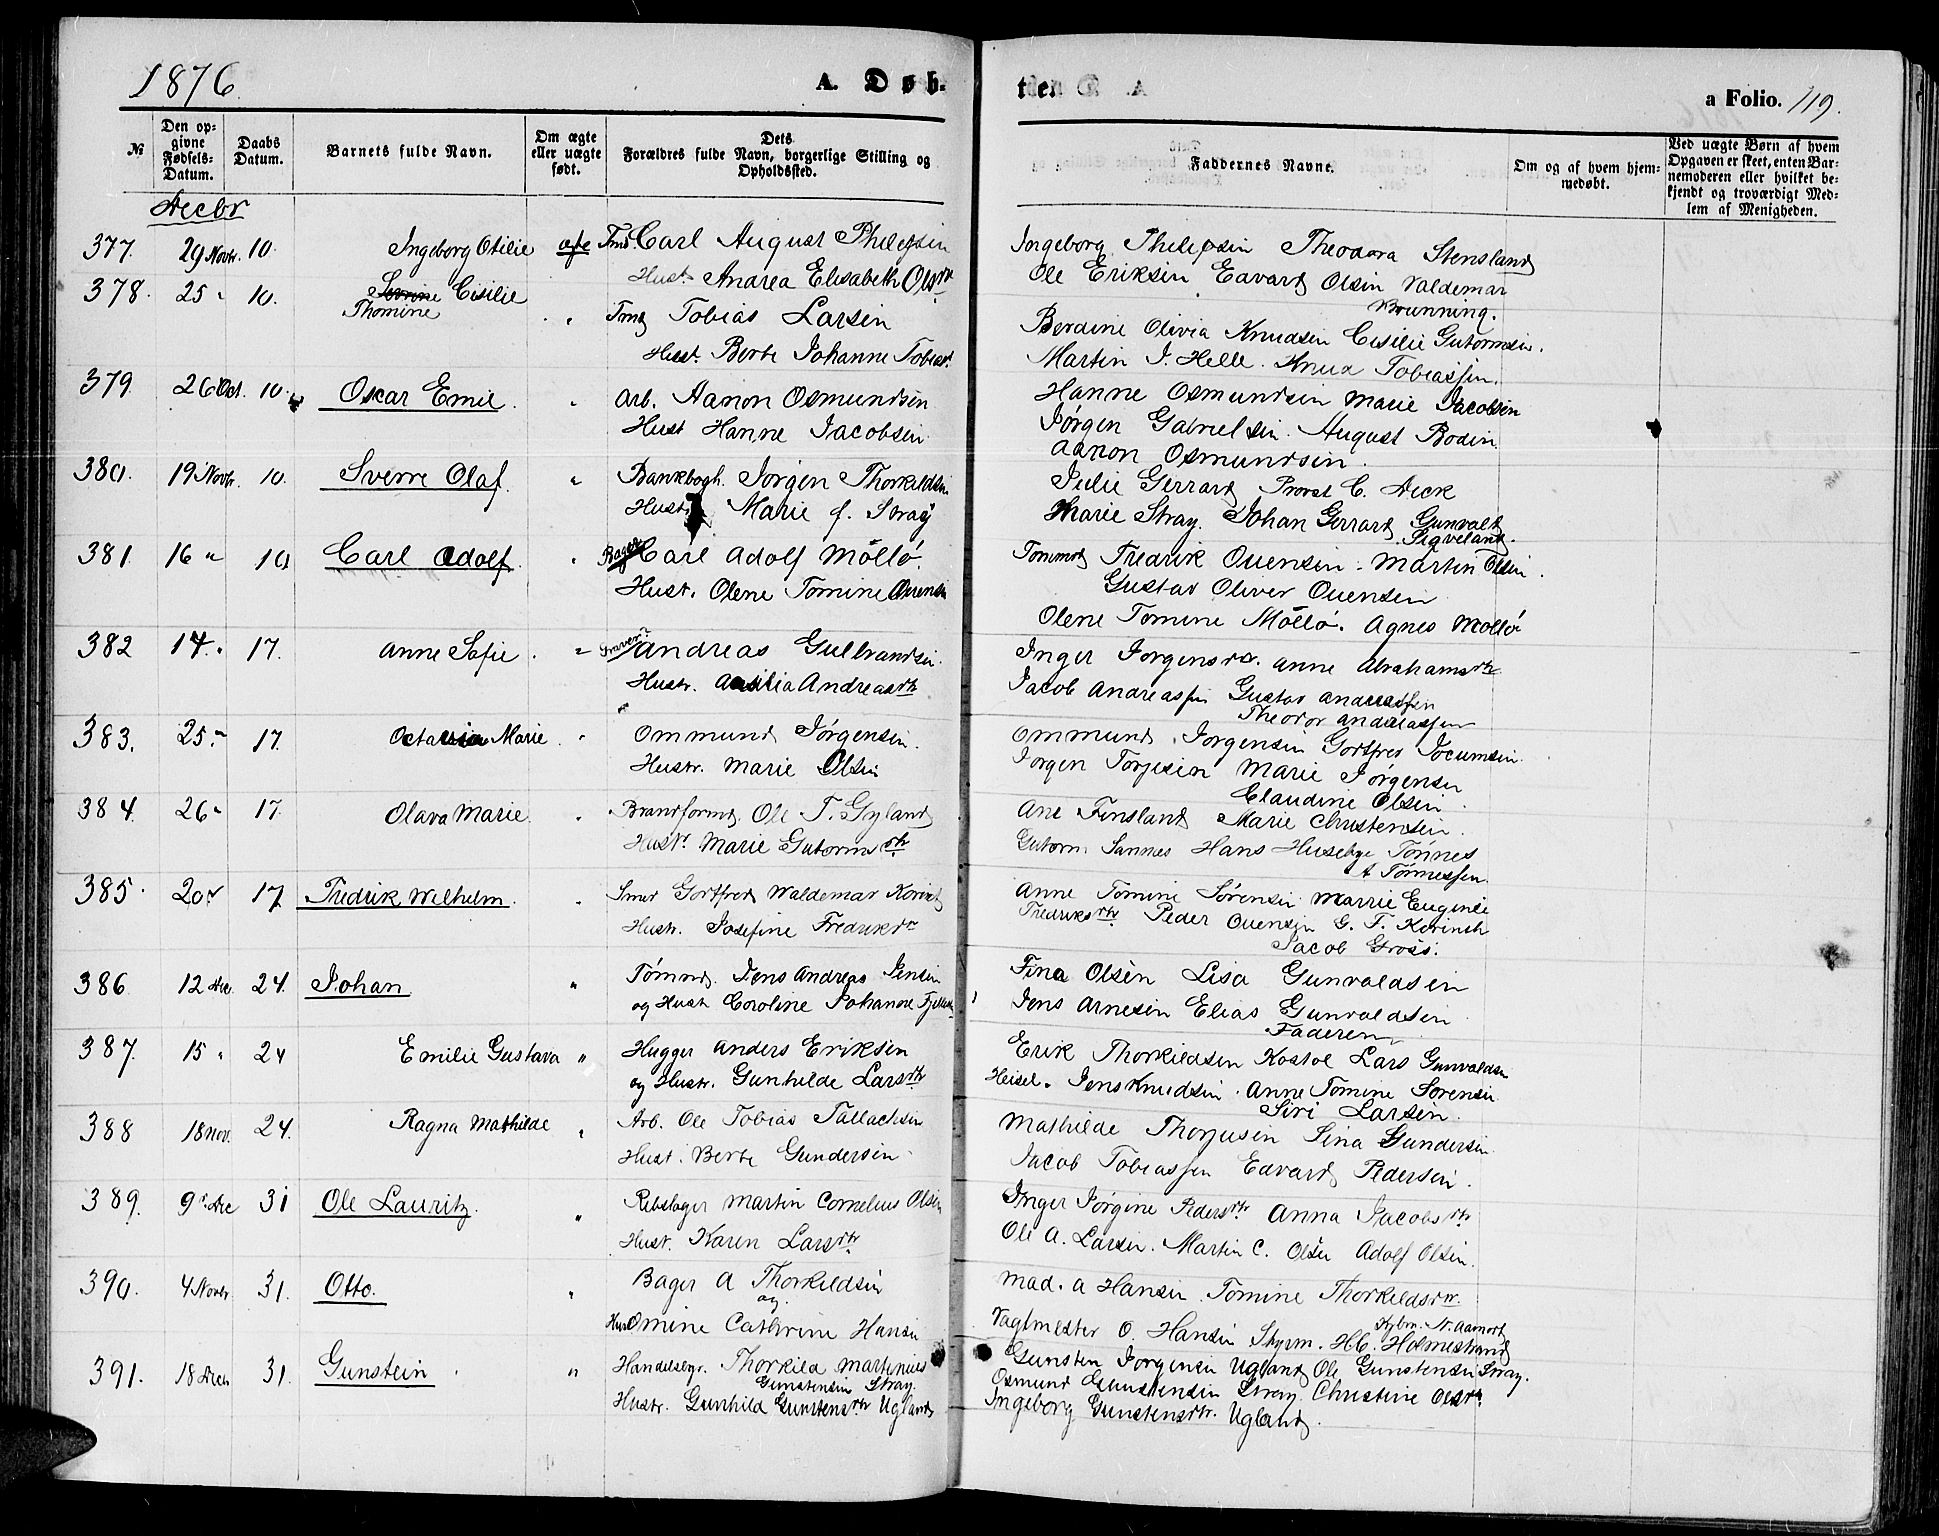 1876
A. Døb-
ter.
a Folio. 119.
№
Den op-
givne
Fødsels-
Datum.
Daabs
Datum.
Barnets fulde Navn.
Om ægte
eller uægte
født.
Dets
Forældres fulde Navn, borgerlige Stilling og
Opholdssted.
Faddernes Navne.
Om og af hvem hjem-
medøbt.
Ved uægte Børn af hvem
Opgaven er skeet, enten Bar-
nemoderen eller hvilket be-
kjendt og troværdigt Med-
lem af Menigheden.
Decbr
377. 29 Novbr. 10. Ingeborg Otilie Carl August Philepsin
Hust. Andrea Elisabeth Olsdtr
Ingeborg Philepsin Theodora Stensland
Ole Eriksin Edvard Olsin Valdemar
Brunning.
378. 25 " 10. Sevrine Cisilie
Thomine
" Tmd Tobias Larsin
Hust. Berte Johanne Tobiasd.
Berdine Olivia Knudsin Cisilie Gutormsin.
Martin J. Helle. Knud Tobiassen.
379. 26 Oct. 10. Oscar Emil. " Arb. Aanon Osmundsin
Hust Hanne Jacobsin
Hanne Osmundsin Marie Jacobsin
Jørgen Gabrielsin. August Bodin
Aanon Osmundsin.
380. 19 Novbr. 10. Sverre Olaf. " Bankbogh. Jørgin Thorkildsin
Hust. Marie f. Stray
Julie Gerrard Provst C. Dick
Marie Stray. Johan Gerrard Gunvald
Sigveland.
381. 16 " 10 Carl Adolf. " Bager Carl Adolf Möllö.
Hust. Olene Tomine Ouensin
Tømmd Fredrik Ouensin. Martin Olsin.
Gustav Oliver Ouensin
Olene Tomine Möllö. Agnes Möllö
382 14. " 17. Anne Sofie. " Andreas Gulbrandsin.
Hustr. Andreasdtr
Inger Jorgensdtr. Anne Abrahamsdtr
Jacob Andreassen Gustav Andreassen
Theodor Andreassen
383. 25. " 17. Octavia Marie. " Ommund Jörgensin.
Hustr. Marie Olsin
Ommund Jorgensin Gortfred Jocumsin.
Jorgen Torjusin Marie Jørgensin
Claudine Olsin.
384. 26 " 17. Olava Marie. " Brandformd. Ole T. Gyland
Hustr. Marie Gutormsdtr
Ane Finsland Marie Christensin.
Gutorm Sannes Hans Husebye Tönnes
A Tönnessen.
385. 20. " 17 Fredrik Wilhelm. " Smed Gortfred Waldemar
Hustr. Josefine Fredriksdtr
Anne Tomine Sörensin Marie Eugenie
Fredriksdtr Peder Ouensin G. F.
Jacob Gross.
386 12 Dec. 24. Johan " Tømmd. Jens Andreas Jensin
og Hust Caroline Johanne
Fina Olsen Lisa Gunvaldsin
Jens Arnesin Elias Gunvaldsin.
Faderen
387. 15 " 24 Emilie Gustava " Hugger Anders Eriksin
og Hustr. Gunhilde Larsdtr
Erik Thorkildsen Kostøl Lars Gunvaldsin
Heisel. Jens Knudsin. Anne Tomine Sorensin
Siri Larsen.
388 18 Nov. 24. Ragna Mathilde " Arb. Ole Tobias Tallachsin
Hust. Berte Gundersin.
Mathilde Thorjusin Sina Gundersin.
Jacob Tobiassen Edvard Pedersin.
389. 9. Dec 31 Ole Lauritz. " Rebslager Martin Cornelius Olsin
Hust. Karen Larsdtr
Inger Jørgine Pedersdtr Anna Jacobsdtr
Ole A. Larsin. Martin C. Olsin Adolf Olsin.
390. 4 Novbr 31. Otto. " Bager A Thorkildsin
og
Hust Omine Cathrine Hansin
Mad. A Hansin Tomine Thorkildsdtr.
Vagtmester O. Hansin Styrm. H.C. Holmestrand
391. 18 Decb 31. Gunstein. " Handelsbgr. Thorkild Martinius
Gunstensin Stray.
Hustr. Gunhild Gunstensdtr Ugland
Gunsten Jorgensin Ugland Ole Gunstensin Stray.
Osmund Gunstensin Stray. Christine Olsdtr
Ingeborg Gunstensdtr. Ugland.